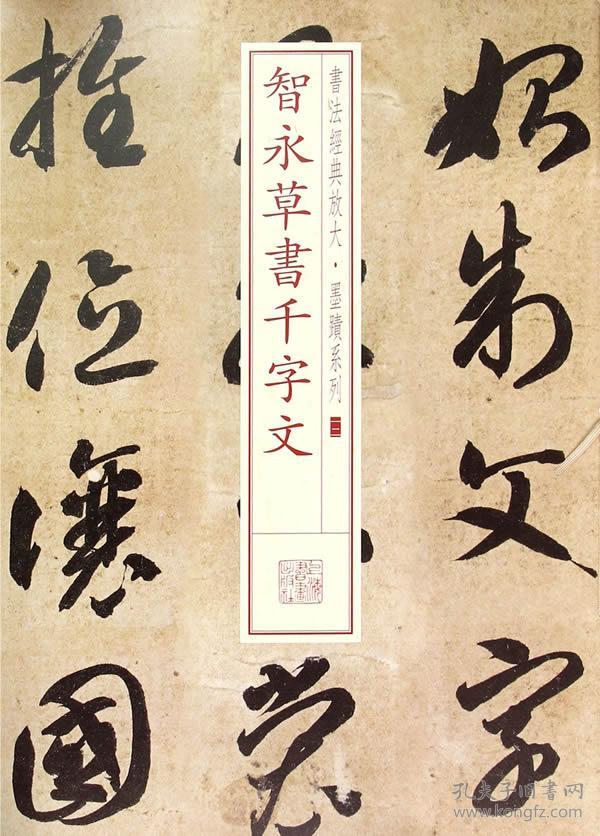 始制文字
書法經典放大·墨蹟系列
智永草書千字文
上海書畫出版社
裳
推位讓國
孔夫子旧書网
www.kongfz.com